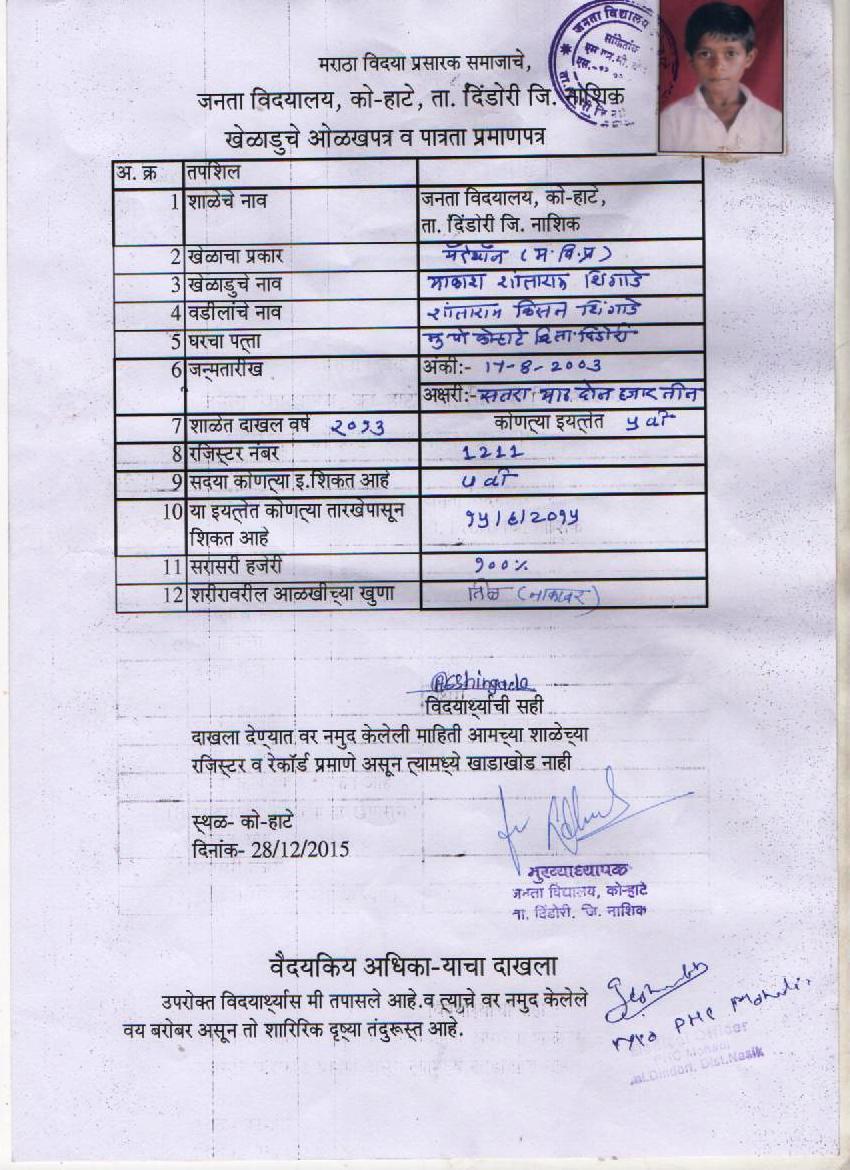 मराठा विदया प्रसारक समाजाचे,
जनता विदयालय, को-हाटे, ता. दिंडोरी जि. नाशिक
खेळाडुचे ओळखपत्र व पात्रता प्रमाणपत्र
जनता विद्यालय
अ. क्र तपशिल
1 शाळेचे नाव जनता विदयालय, को-हाटे,
ता. दिंडोरी जि. नाशिक
2 खेळाचा प्रकार मॅरेथॉन (म.वि.प्र)
3 खेळाडुचे नाव आकाश शांताराम शिंगाडे
4 वडीलांचे नाव शांताराम किसन शिंगाडे
5 घरचा पत्ता मु पो कोऱ्हाटे दिंडोरी
6 जन्मतारीख अंकी:- 17-8-2003
अक्षरी:- सतरा आठ दोन हजार तीन
7 शाळेत दाखल वर्ष २०१३ कोणत्या इयत्तेत ५ वी
8 रजिस्टर नंबर 1211
9 सदया कोणत्या इ.शिकत आहे
10 या इयत्तेत कोणत्या तारखेपासून १५/६/२०१५
शिकत आहे
11 सरासरी हजेरी १००%
12 शरीरावरील आळखीच्या खुणा तिळ (नाकावर)
विदयार्थ्याची सही
दाखला देण्यात वर नमुद केलेली माहिती आमच्या शाळेच्या
रजिस्टर व रेकॉर्ड प्रमाणे असून त्यामध्ये खाडाखोड नाही
स्थळ- को-हाटे
दिनांक- 28/12/2015
मुख्याध्यापक
जनता विद्यालय, कोऱ्हाटे
ता. दिंडोरी, जि. नाशिक
वैदयकिय अधिका-याचा दाखला
उपरोक्त विदयार्थ्यास मी तपासले आहे.व त्याचे वर नमुद केलेले
वय बरोबर असून तो शारिरिक दृष्या तंदुरूस्त आहे.
PHC Mohadi
Medical Officer
PHC Mohadi
Tal.Dindori, Dist.Nasik